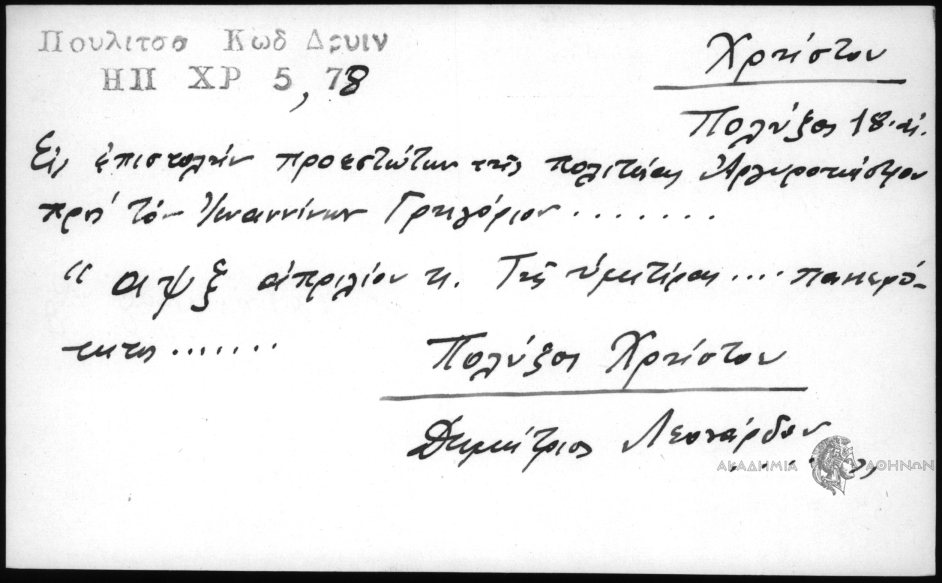 Πουλιτσα Κωδ Δρυιν
ΗΠ ΧΡ 5, 78
Χρήστου
Πολύζος 18. αἰ.
Εἰς ἐπιστολὴν προεστώτων τῆς πολιτείας Ἀργυροκάστρου
πρὸς τὸν Ἰωαννίνων Γρηγόριον .......
" αψξ ἀπριλίου κ. Τῆς ὑμετέρας .... πανιερό-
τητος .......
Πολύζος Χρήστου
Δημήτριος Λεονάρδου
ΑΚΑΔΗΜΙΑ ΑΘΗΝΩΝ